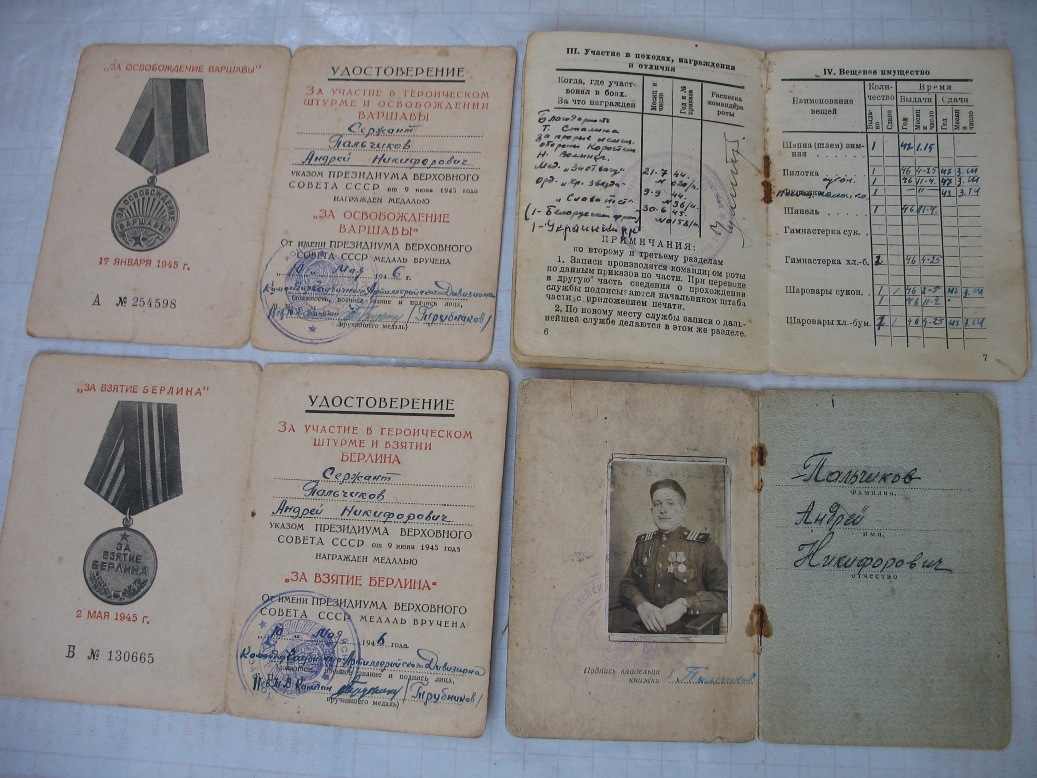 „ЗА ОСВОБОЖДЕНИЕ ВАРШАВЫ"
ЗА ОСВОБОЖДЕНИЕ
ВАРШАВЫ
17 ЯНВАРЯ 1945 г.
А № 254598
УДОСТОВЕРЕНИЕ
ЗА УЧАСТИЕ В ГЕРОИЧЕСКОМ
ШТУРМЕ И ОСВОБОЖДЕНИИ
ВАРШАВЫ
Сержант
Пальчиков
Андрей Никифорович
УКАЗОМ ПРЕЗИДИУМА ВЕРХОВНОГО
СОВЕТА СССР от 9 июня 1945 года
НАГРАЖДЕН МЕДАЛЬЮ
"ЗА ОСВОБОЖДЕНИЕ
ВАРШАВЫ"
От ИМЕНИ ПРЕЗИДИУМА ВЕРХОВНОГО
СОВЕТА СССР МЕДАЛЬ ВРУЧЕНА
„10" Мая 1946 г.
Артиллерийского Дивизиона
(должность, военное звание и подпись лица,
(Трубников)
вручившего медаль)
„ЗА ВЗЯТИЕ БЕРЛИНА"
ЗА
ВЗЯТИЕ
БЕРЛИНА
2 МАЯ 1945 г.
Б № 130665
УДОСТОВЕРЕНИЕ
ЗА УЧАСТИЕ В ГЕРОИЧЕСКОМ
ШТУРМЕ И ВЗЯТИИ
БЕРЛИНА
Сержант
Пальчиков
Андрей Никифорович
УКАЗОМ ПРЕЗИДИУМА ВЕРХОВНОГО
СОВЕТА СССР от 9 июня 1945 года
НАГРАЖДЕН МЕДАЛЬЮ
"ЗА ВЗЯТИЕ БЕРЛИНА"
От ИМЕНИ ПРЕЗИДИУМА ВЕРХОВНОГО
СОВЕТА СССР МЕДАЛЬ ВРУЧЕНА
„10" Мая 1946 года
Артиллерийского Дивизиона
(должность, военное звание и подпись лица,
(Трубников)
вручившего медаль)
III. Участие в походах, награждения
и отличия
Когда, где участ-
вовал в боях.
За что награжден
Месяц и число
Год и № приказа
Расписка командира роты
Благодарность
Т. Сталина
За прорыв немец.
обороны
21-7 44.
Орд. „Кр. Звезда"
9-9 44.
30-6 45.
(1-Белорусский фрон)
1-Украинский
ПРИМЕЧАНИЯ:
по второму и третьему разделам
1. Записи производятся командиром роты
по данным приказов по части. При переводе
в другую часть сведения о прохождении
службы подписываются начальником штаба
части, с приложением печати.
2. По новому месту службы записи о даль-
нейшей службе делаются в этом же разделе.
6
IV. Вещевое имущество
Наименование
вещей
Коли-
чество
Время
Выдачи
Сдачи
Выда-
но
Сдано
Год
Месяц и число
Год
Месяц и число
Шапка (шлем) зим-
няя
1
Пилотка
1 46 4-25 47
Шинель 1 46 11-4
Гимнастерка сук.
Гимнастерка хл.-б. 46 4-25
Шаровары сукон.
Шаровары хл.-бум. 46 4-25
7
Подпись владельца
книжки
Пальчиков
Пальчиков
Фамилия,
Андрей
имя,
Никифорович
отчество